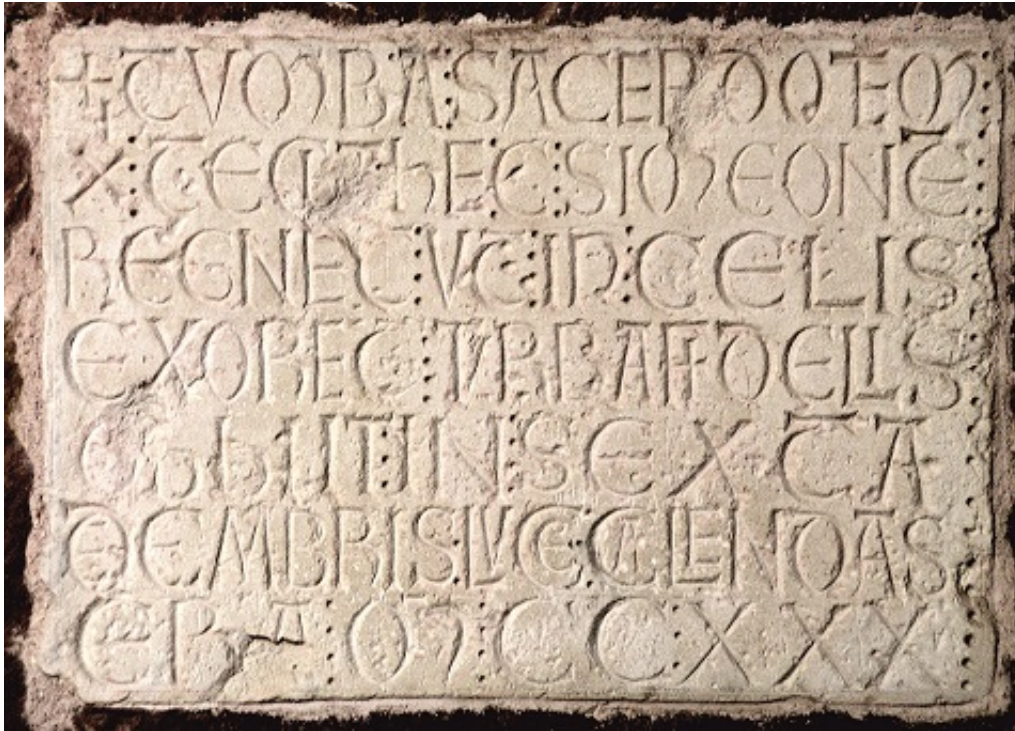 + TVMBA : SACERDOTEM :
X : TEGIT hEC : SIMEONE :
REGNET : VT : IN : CELIS
EXORET : TVRBA FIDELIS
IN : SEXTA
DECEMBRIS : LVCE : CALENDAS
ERA : M : CC : XXX